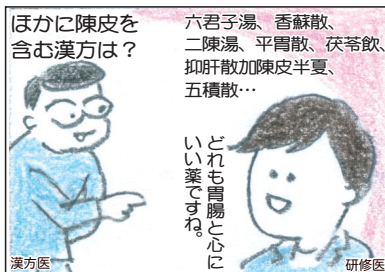 ほかに陳皮を
含む漢方は？
六君子湯、香蘇散、
二陳湯、平胃散、茯苓飲、
抑肝散加陳皮半夏、
五積散…
どれも胃腸と心に
いい薬ですね。
漢方医
研修医